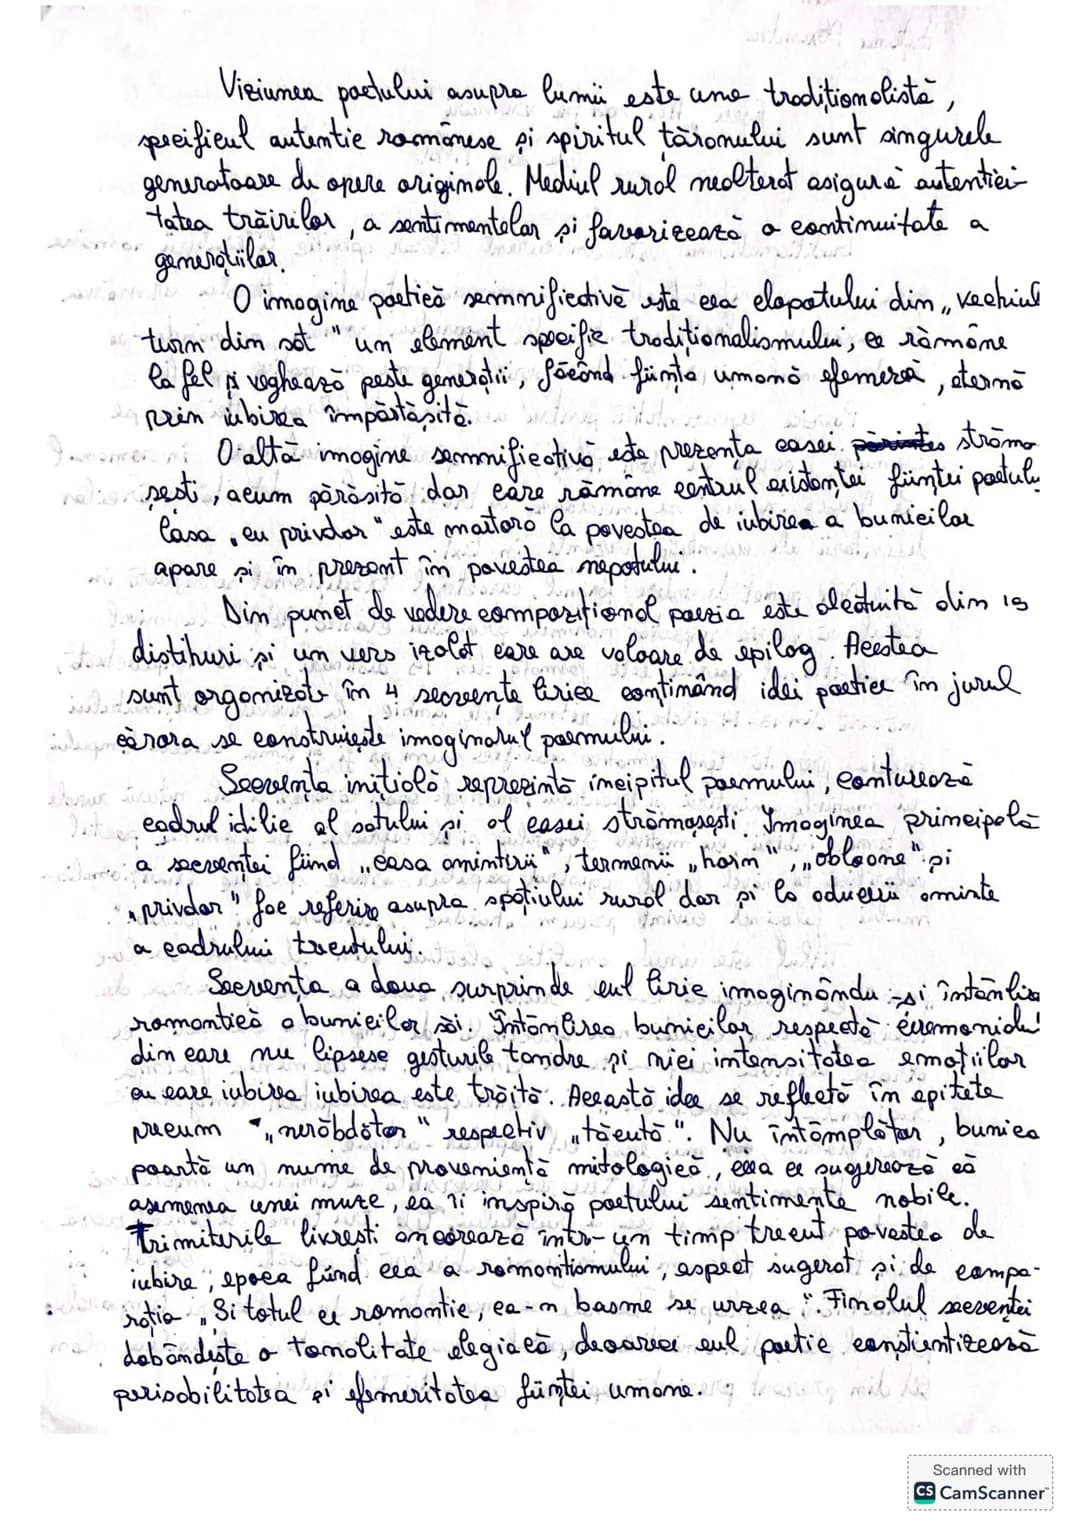 Viziunea poetului asupra lumii este una tradiționalistă,
specificul autentic românesc și spiritul țăranului sunt singurele
generatoare de opere originale. Mediul rural nealterat asigură autentici-
tatea trăirilor, a sentimentelor și favorizează o continuitate a
generațiilor.
O imagine poetică semnificativă este cea clopotului din „vechiul
turn din sat" un element specific tradiționalismului, ce rămâne
la fel și veghează peste generații, făcând ființa umană efemeră, eternă
prin iubirea împărtășită.
O altă imagine semnificativă este prezența casei strămo
șești, acum părăsită dar care rămâne centrul existenței ființei poetulu
Casa „cu pridvor" este martoră la povestea de iubirea a bunicilor
apare și în prezent în povestea nepotului.
Din punct de vedere compozițional poezia este alcătuită din 19
distihuri și un vers izolat care are valoare de epilog. Acestea
sunt organizate în 4 secvențe lirice conținând idei poetice în jurul
cărora se construiește imaginarul poemului.
Secvența inițială reprezintă incipitul poemului, conturează
cadrul idilic al satului și al casei strămoșești. Imaginea principală
a secvenței fiind „casa amintirii", termenii „hain", „obloane" și
„pridvor" fac referire asupra spațiului rural dar și la aducerii aminte
a cadrului trecutului.
Secvența a doua surprinde eul liric imaginându-și întâlnirea
romantică a bunicilor săi. Întâlnirea bunicilor respectă ceremonialul
din care nu lipsesc gesturile tandre și nici intensitatea emoțiilor
cu care iubirea iubirea este trăită. Această idee se reflectă în epitete
precum „nerăbdător" respectiv „tăcută". Nu întâmplător, bunica
poartă un nume de proveniență mitologică, ceea ce sugerează că
asemenea unei muze, ea îi inspiră poetului sentimente nobile.
Trimiterile livrești ancorează într-un timp trecut povestea de
iubire, epoca fiind cea a romantismului, aspect sugerat și de compa-
rația „Și totul ce romantic, ca-n basme se urzea". Finalul secvenței
dobândește o tonalitate elegiacă, deoarece eul poetic conștientizează
perisabilitatea și efemeritatea ființei umane.
Scanned with
CS CamScanner